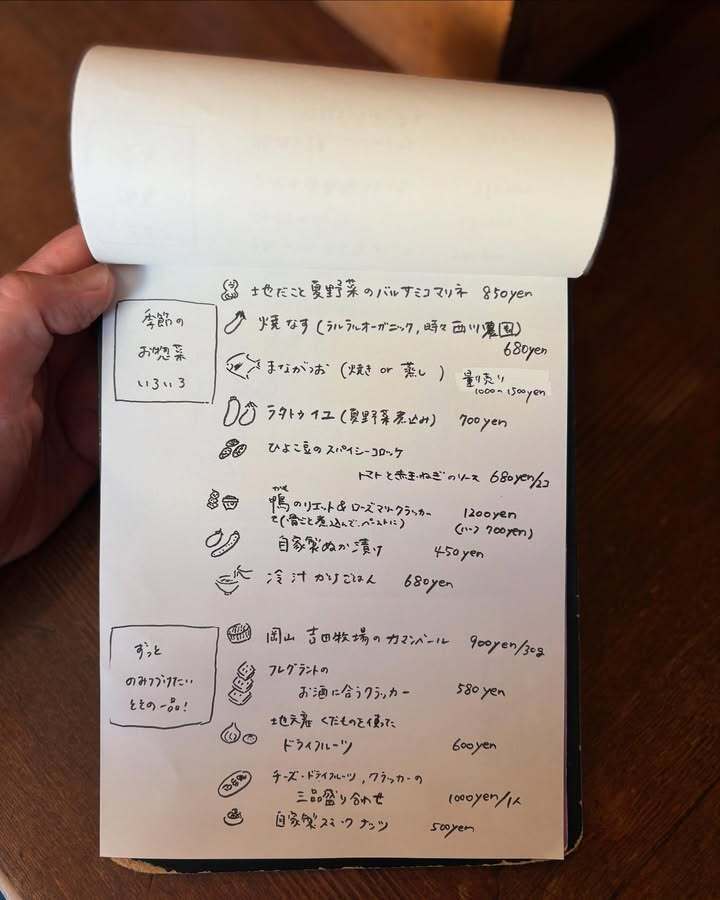 季節の
お惣菜
いろいろ
地だこと夏野菜のバルサミコマリネ 850yen
焼なす(ラルラルオーガニック, 時々 西川農園)
680yen
まながつお (焼き or 蒸し) 量り売り
1000〜1500yen
ラタトゥイユ(夏野菜煮込み) 700yen
ひよこ豆のスパイシーコロッケ
トマトと赤玉ねぎのソース 680yen/2コ
かも
鴨のリエット&ローズマリークラッカー 1200yen
(骨ごと煮込んで、ペーストに) (ハーフ 700yen)
自家製ぬか漬け 450yen
冷汁かけごはん 680yen
ずっと
のみつづけたい
ときの一品!
岡山 吉田牧場のカマンベール 900yen/30g
フレグラントの
お酒に合うクラッカー 580yen
地元産 くだものを使った
ドライフルーツ 600yen
チーズ・ドライフルーツ, クラッカーの
三品盛り合わせ 1000yen/1人
自家製スモークナッツ 500yen